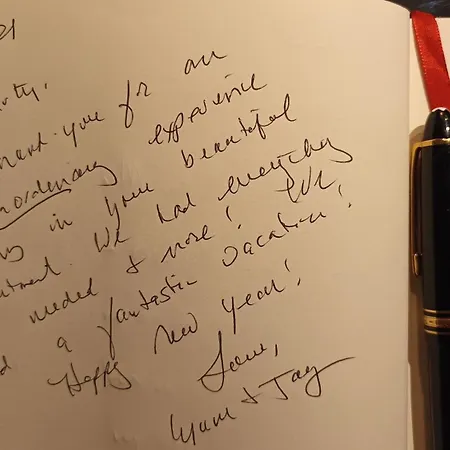 21
hank you for an
extraordinary experience
in your beautiful
We had everything
needed & more! We
a fantastic vacation!
Happy New Year!
Love,
& Jay